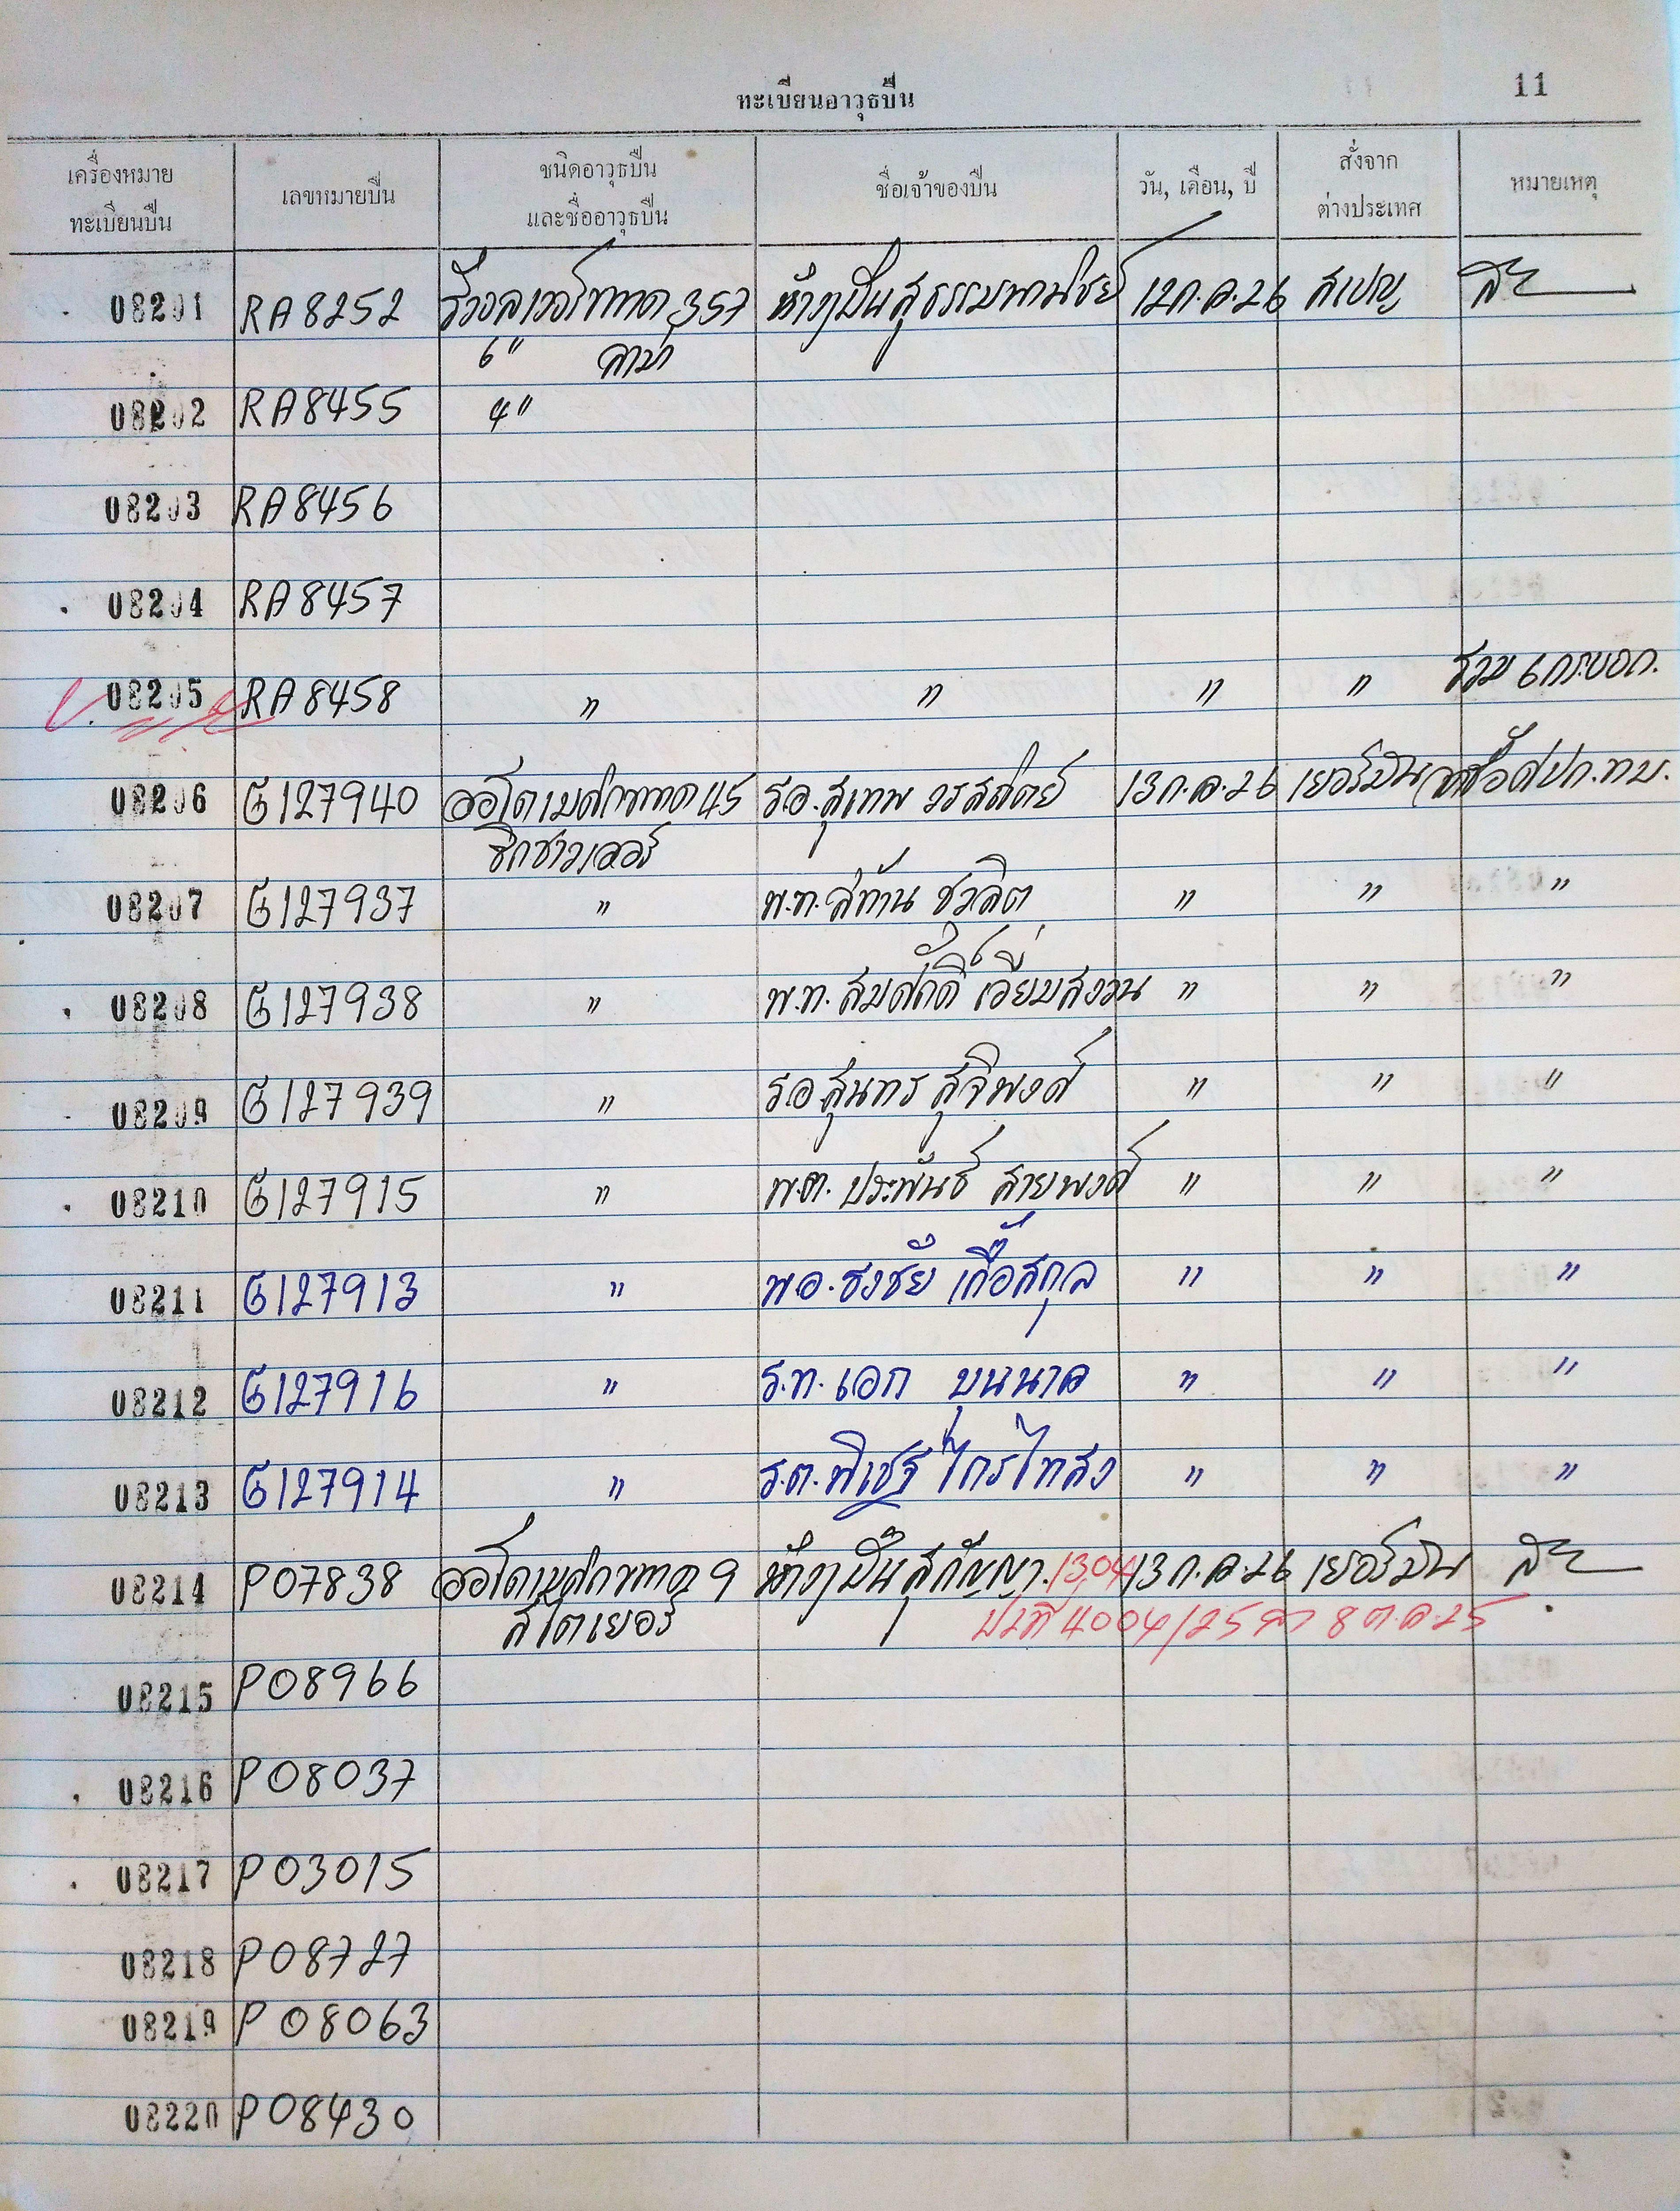 ทะเบียนอาวุธปืน 11
เครื่องหมาย ทะเบียนปืน เลขหมายปืน ชนิดอาวุธปืน และชื่ออาวุธปืน ชื่อเจ้าของปืน วัน, เดือน, ปี สั่งจาก ต่างประเทศ หมายเหตุ
08201 RA8252 รีวอลเวอร์ขนาด .357 ห้างปืนสุธรรมพานิชย์ 12 ก.ค.26 สเปญ
6" ลามา
08202 RA8455 4"
08203 RA8456
08204 RA8457
08205 RA8458 " " " " รวม 6 กระบอก.
08206 G127940 ออโตเมติกขนาด 45 ร.อ.สุเทพ วรสสิตย์ 13 ก.ค.26 เยอรมัน ศปก.ทบ.
ซิกซาวเออร์
08207 G127937 " พ.ท. ชวลิต " " "
08208 G127938 " พ.ท. สมศักดิ์ เอี่ยมสงวน " " "
08209 G127939 " ร.อ สุนทร สุจิพงศ์ " " "
08210 G127915 " พ.ต. ประพันธ์ สายพงศ์ " " "
08211 G127913 " พ.อ.ธงชัย เกื้อสกุล " " "
08212 G127916 " ร.ท. เอก บุนนาค " " "
08213 G127914 " ร.ต.พิเชฐ ไกรไทสง " " "
08214 P07838 ออโตเมติกขนาด 9 ห้างปืนสุกัญญา. 1304 13 ก.ค.26 เยอรมัน
สโตเยอร์ ป.2ที่ 4004/25 8 ต.ค.25
08215 P08966
08216 P08037
08217 P03015
08218 P08727
08219 P08063
08220 P08430